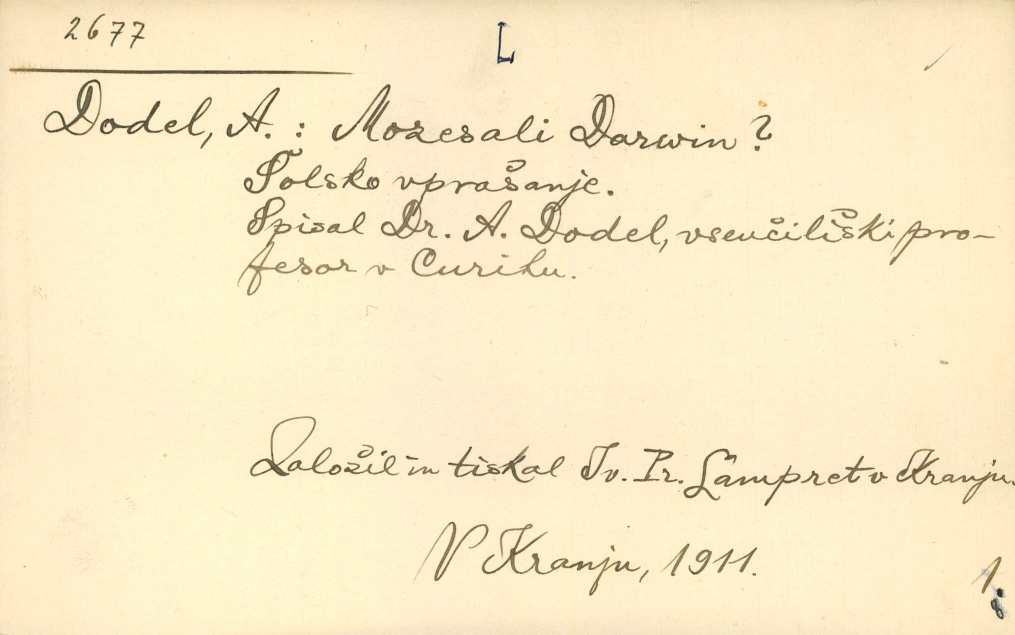 2677
L
Dodel, A. : Mozesali Darwin?
Šolsko vprašanje.
Spisal Dr. A. Dodel, vseučiliški pro-
fesor v Curihu.
Založil in tiskal Iv. Pr. Lampret v Kranju.
V Kranju, 1911.
1.
8